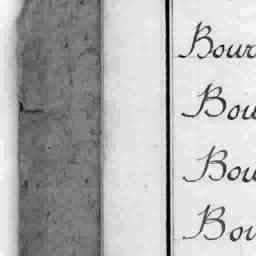 Bour
Bou
Bou
Bou